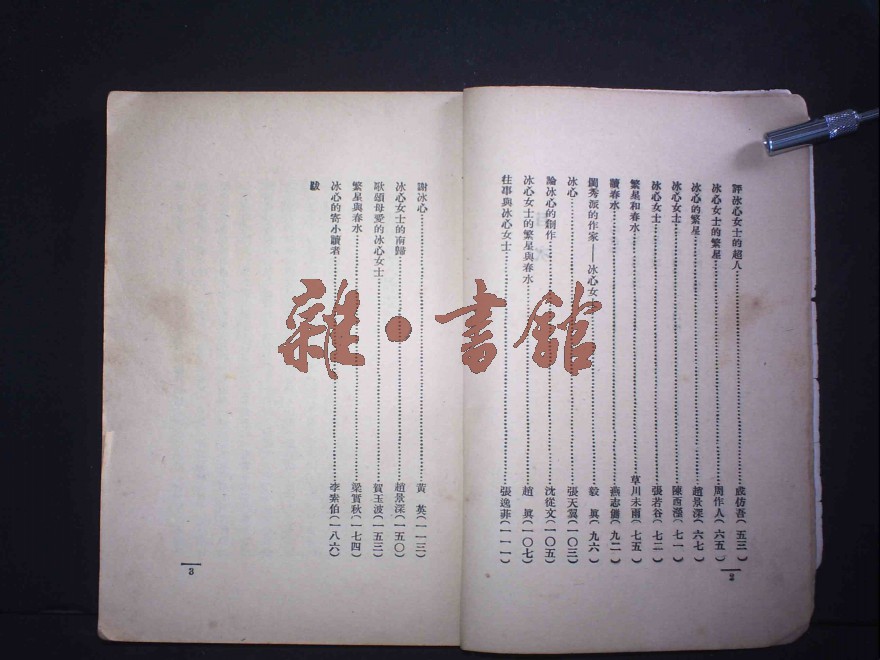 評冰心女士的超人……成仿吾(五三)
冰心女士的繁星……周作人(六五)
冰心的繁星……趙景深(六七)
冰心女士……陳西瀅(七一)
冰心女士……張若谷(七二)
繁星和春水……草川未雨(七五)
讀春水……燕志儁(九二)
閨秀派的作家——冰心女……毅真(九六)
冰心……張天翼(一〇三)
論冰心的創作……沈從文(一〇五)
冰心女士的繁星與春水……趙真(一〇七)
往事與冰心女士……張逸菲(一一一)
2
謝冰心……黃英(一一三)
冰心女士的南歸……趙景深(一五〇)
歌頌母愛的冰心女士……賀玉波(一五三)
繁星與春水……梁實秋(一七四)
冰心的寄小讀者……李素伯(一八六)
跋
3
雜·書館